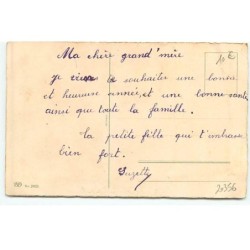 Ma chère grand'mère
je viens te souhaiter une bonne
et heureuse année et une bonne santé
ainsi que toute la famille.
la petite fille qui t'embrasse
bien fort.
Suzette
10 €
20356